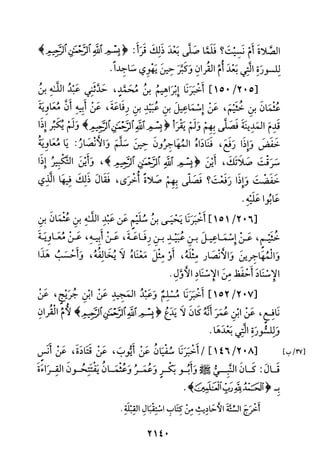 الصَّلَاةَ أَمْ نَسِيْتَ؟ فَلَمَّا صَلَّى بَعْدَ ذَلِكَ قَرَأَ: ﴿بِسْمِ اللَّهِ الرَّحْمَنِ الرَّحِيمِ﴾
لِلسورَةِ الَّتِي بَعْدَ أُمِّ القُرآنِ وَكَبَّرَ حِينَ يَهْوِي سَاجِداً.
[١٥٠/٢٠٥] أَخْبَرَنَا إِبْرَاهِيمُ بنُ مُحَمَّدٍ، حَدَّثَنِي عَبْدُ اللَّهِ بنُ
عُثْمَانَ بنِ خُثَيْمٍ، عَنْ إِسْمَاعِيلَ بنِ عُبَيْدِ بنِ رِفَاعَةَ، عَنْ أَبِيهِ أَنَّ مُعَاوِيَةَ
قَدِمَ المَدِينَةَ فَصَلَّى بِهِمْ وَلَمْ يَقْرَأْ ﴿بِسْمِ اللَّهِ الرَّحْمَنِ الرَّحِيمِ﴾ وَلَمْ يُكَبِّرْ إِذَا
خَفَضَ وَإِذَا رَفَعَ، فَنَادَاهُ المُهَاجِرُونَ حِينَ سَلَّمَ وَالأَنْصَارُ: يَا مُعَاوِيَةُ
سَرَقْتَ صَلَاتَكَ، أَيْنَ ﴿بِسْمِ اللَّهِ الرَّحْمَنِ الرَّحِيمِ﴾، وَأَيْنَ التَّكْبِيرُ إِذَا
خَفَضْتَ وَإِذَا رَفَعْتَ؟ فَصَلَّى بِهِمْ صَلَاةً أُخْرَى، فَقَالَ ذَلِكَ فِيهَا الَّذِي
عَابُوا عَلَيْهِ.
[١٥١/٢٠٦] أَخْبَرَنَا يَحْيَى بنُ سُلَيْمٍ عَن عَبْدِ اللَّهِ بنِ عُثْمَانَ بنِ
خُثَيْمٍ، عَنْ إِسْمَاعِيلَ بنِ عُبَيْدِ بنِ رِفَاعَةَ، عَنْ أَبِيهِ، عَنْ مُعَاوِيَةَ
وَالْمُهَاجِرِينَ وَالأَنْصَارِ مِثْلُهُ، أَوْ مِثْلَ مَعْنَاهُ لَا يُخَالِفُهُ، وَأَحْسَبُ هَذَا
الإِسْنَادَ أَحْفَظَ مِنَ الإِسْنَادِ الأَوَّلِ.
[١٥٢/٢٠٧] أَخْبَرَنَا مُسْلِمٌ وَعَبْدُ المَجِيدِ عَنْ ابْنِ جُرَيْجٍ، عَنْ
نَافِعٍ، عَنْ ابْنِ عُمَرَ أَنَّهُ كَانَ لَا يَدَعُ ﴿بِسْمِ اللَّهِ الرَّحْمَنِ الرَّحِيمِ﴾ لأُمِّ القُرآنِ
وَلِلسُّورَةِ الَّتِي بَعْدَهَا.
[٣٧/ب] [١٤٦/٢٠٨] / أَخْبَرَنَا سُفْيَانُ عَنْ أَيُّوبَ، عَنْ قَتَادَةَ، عَنْ أَنَسٍ
قَالَ: كَانَ النَّبِيُّ ﷺ وَأَبُو بَكْرٍ وَعُمَرُ وَعُثْمَانُ يَفْتَتِحُونَ القِرَاءَةَ
بِـ ﴿الْحَمْدُ لِلَّهِ رَبِّ الْعَالَمِينَ﴾.
أَخْرَجَ السِّتَّةَ الأَحَادِيثَ مِنْ كِتَابِ اسْتِقْبَالِ القِبْلَةِ.
٢١٤٠